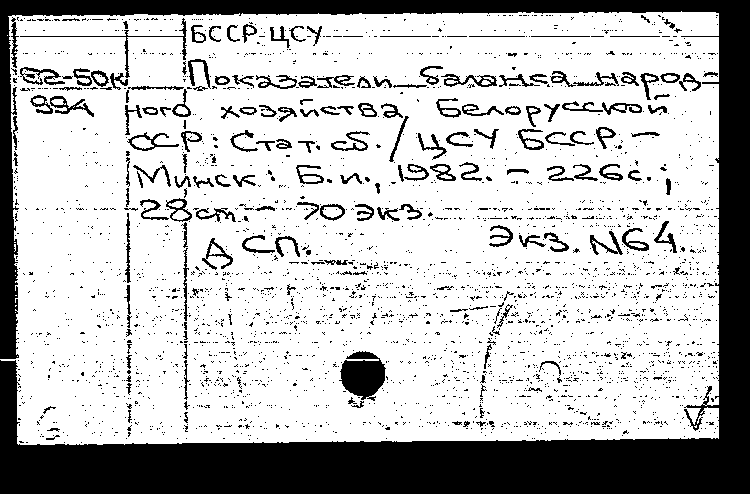 БССР. ЦСУ
82-50к Показатели баланса народ-
994 ного хозяйства Белорусской
ССР: Стат. сб. / ЦСУ БССР. –
Минск: Б.и., 1982. – 226с.;
28см. – 70 экз.
ДСП. Экз. N64.